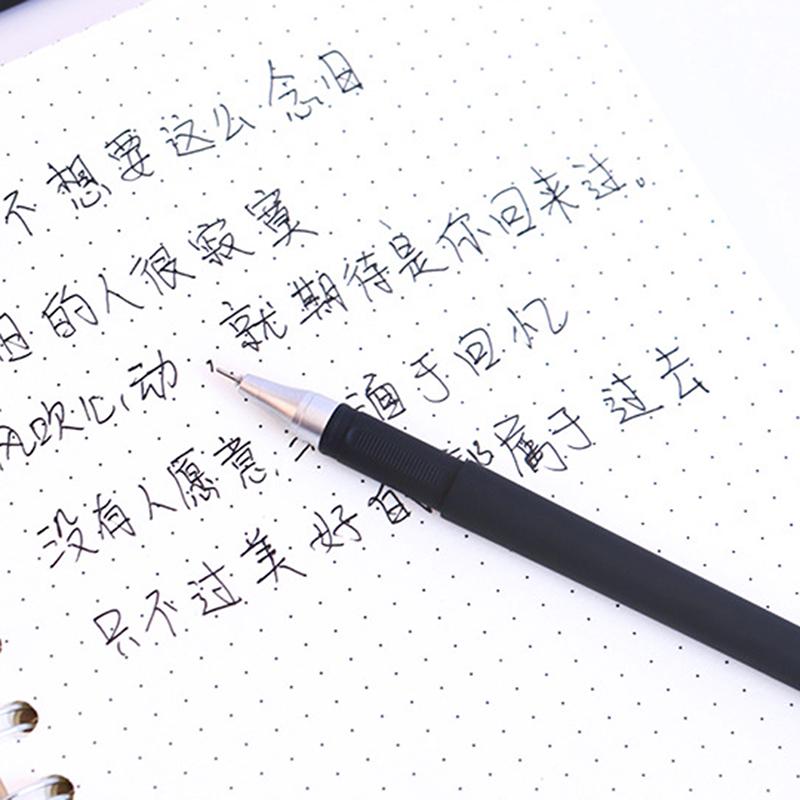 不想要这么念旧
旧的人很寂寞
风吹心动 就期待是你回来过。
没有人愿意 酒于回忆
只不过美好的都属于过去